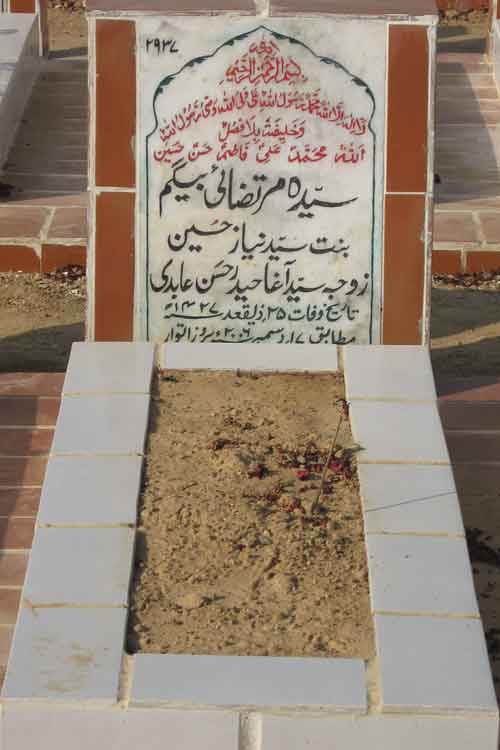 ۲۹۳۷
بسم اللہ الرحمن الرحیم
لا الہ الا اللہ محمد رسول اللہ علی ولی اللہ وصی رسول اللہ
وخلیفتہ بلا فصل
اللہ محمد علی فاطمہ حسن حسین
سیدہ مرتضائی بیگم
بنت سید نیاز حسین
زوجہ سید آغا حیدر حسن عابدی
تاریخ وفات ۲۵ ذیقعد ۱۴۲۷ھ
مطابق ۱۷ دسمبر ۲۰۰۶ء بروز اتوار